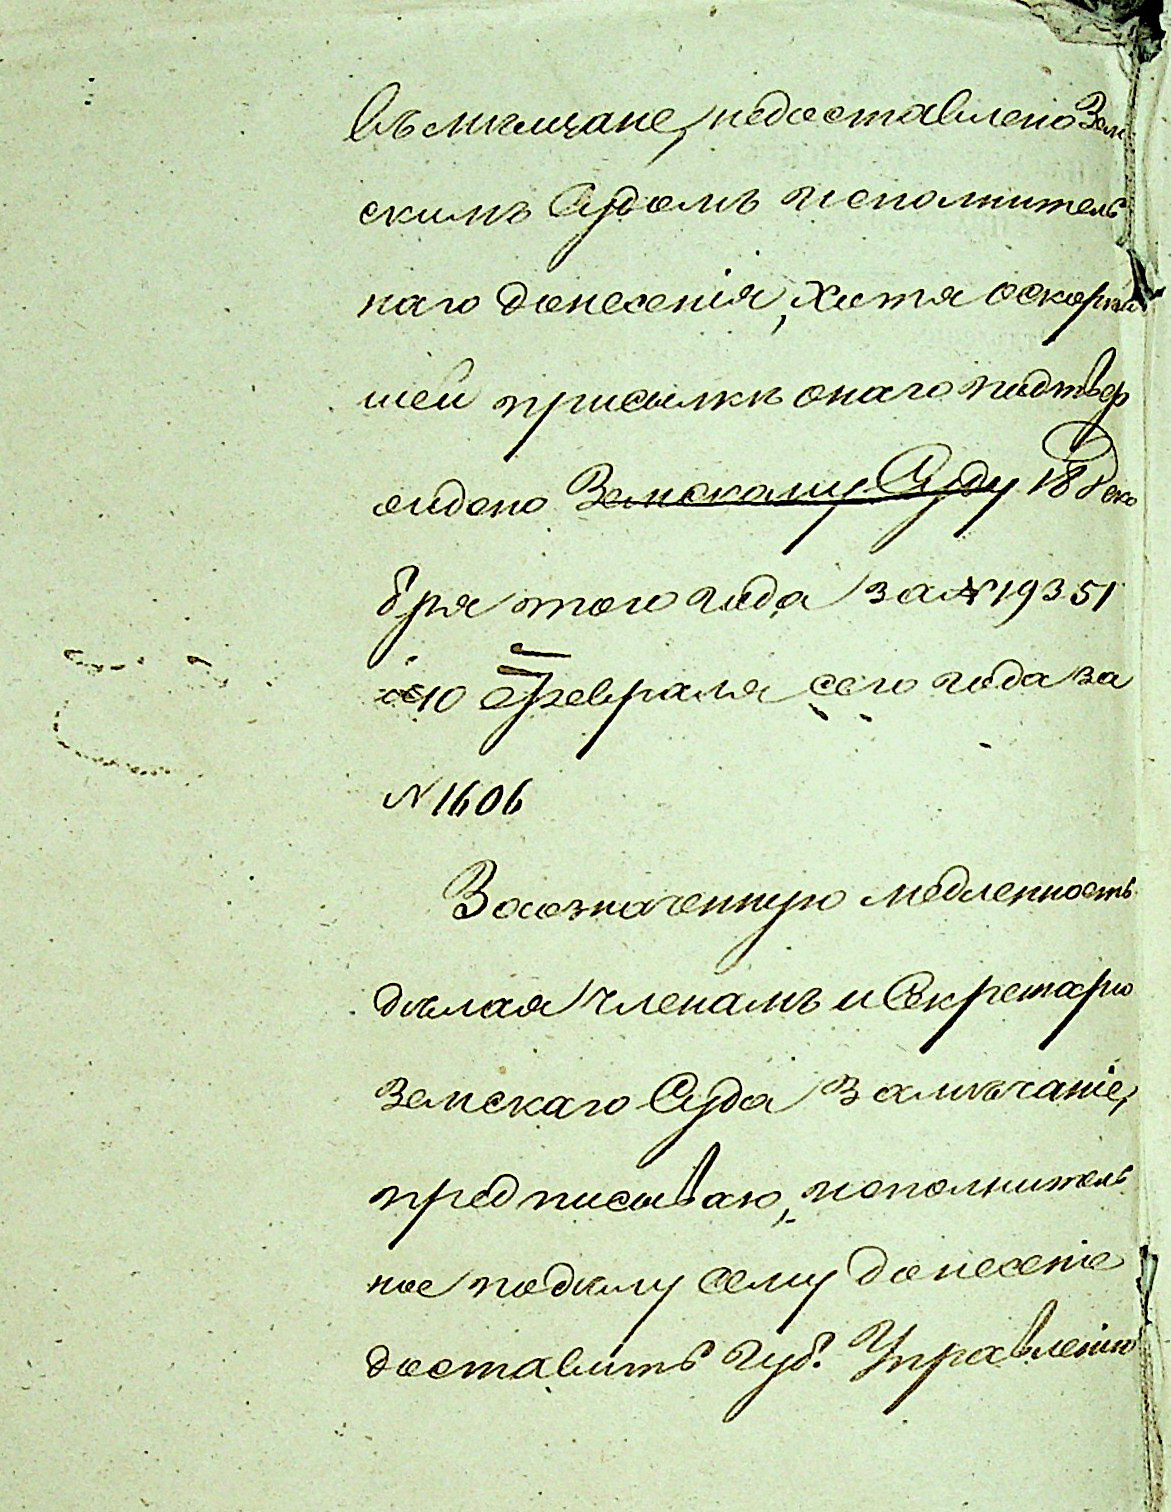 въ мѣщане, недоставлено Зем
скимъ Судомъ исполнитель
наго донесенія, хотя о скорѣй
шей присылкѣ онаго подтвер
ждено Земскому Суду 18 Дека
бря того года за № 19351
и 10 Февраля сего года за
№ 1606
За означенную медленность
дѣлая Членамъ и Секретарю
Земскаго Суда замѣчаніе,
предписываю, исполнитель
ное по делу сему донесеніе
доставить Губ. Управленію